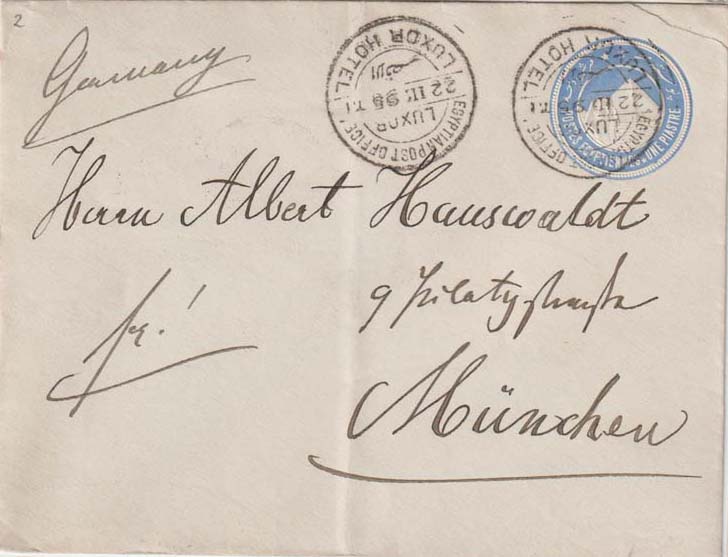 2
Germany
EGYPTIAN POST OFFICE
LUXOR
22 III 95 T1
الاقصر
LUXOR HOTEL
EGYPTIAN POST OFFICE
LUXOR
22 III 95 T1
LUXOR HOTEL
POSTES EGYPTIENNES ONE PIASTRE
Herrn Albert Hauswaldt
9 Pilotystrasse
fr.!
München